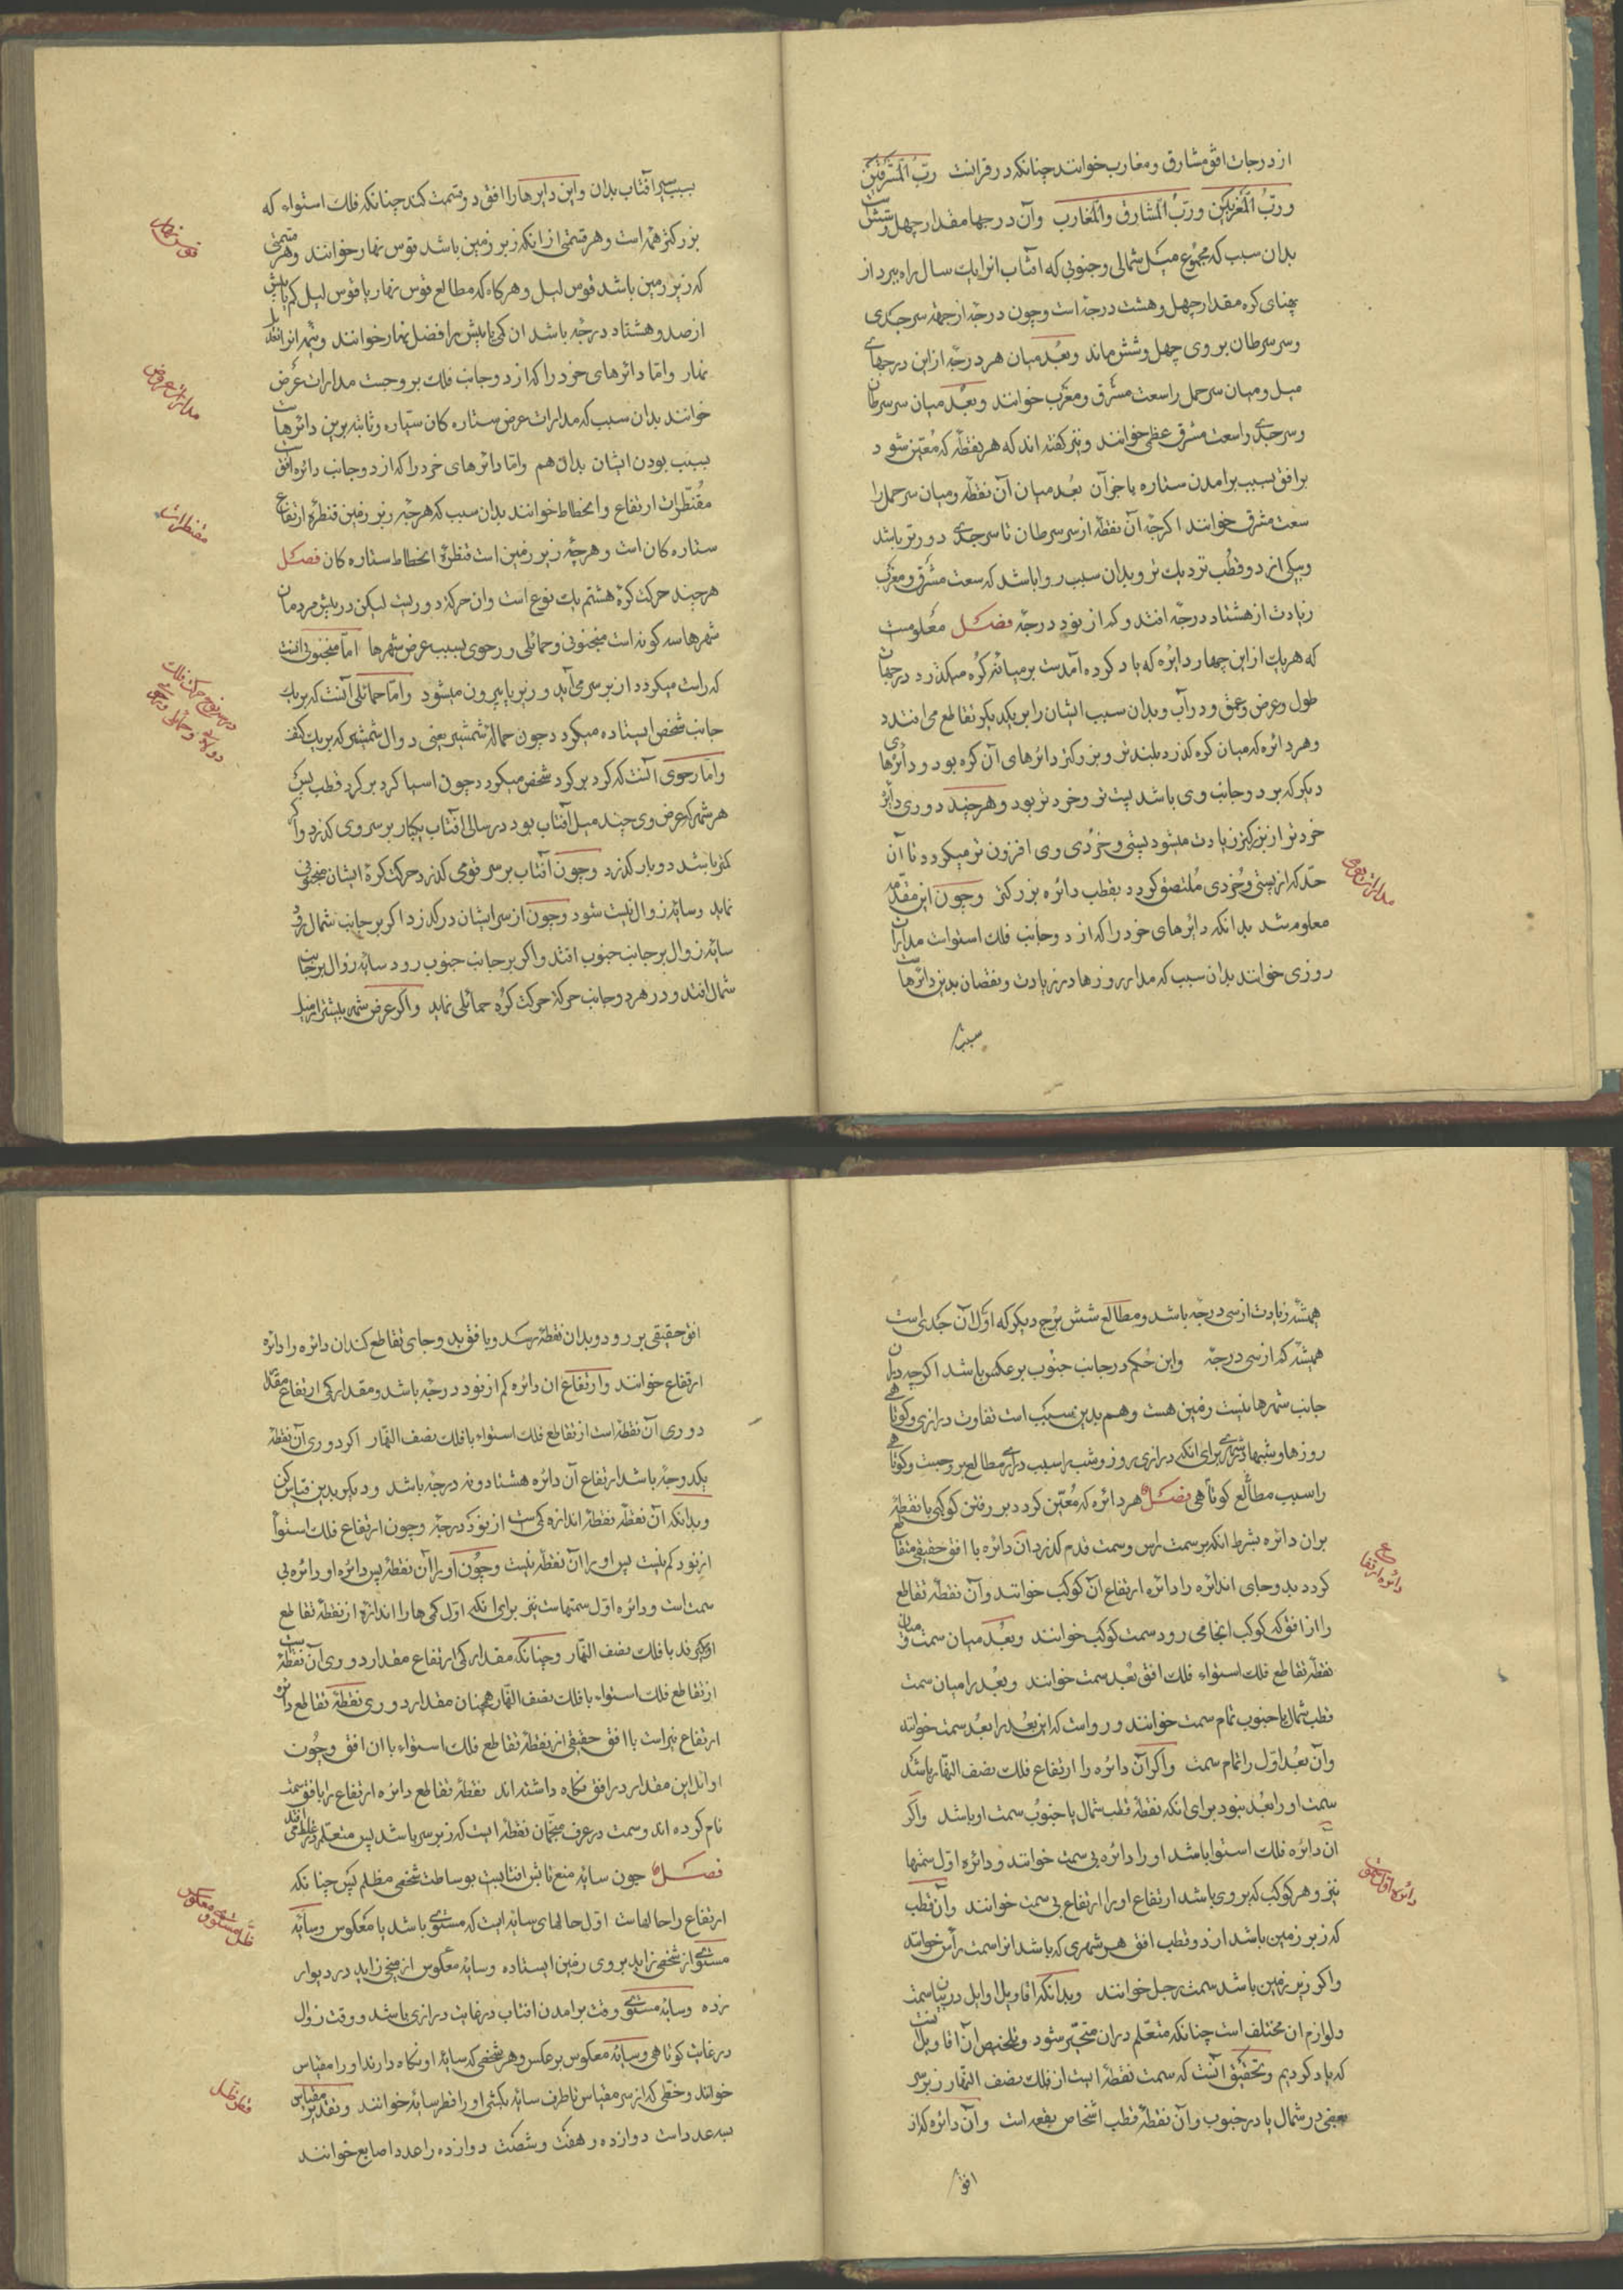 از درجات افق مشارق و مغارب خوانند چنانکه در قرانست ربّ المشرقین
وربّ المغربین وربّ المشارق والمغارب وآن درجها مقدار چهل وشش است
بدان سبب که مجموع میل شمالی وجنوبی که افتاب انرا بیک سال راه ببرد از
پهنای کره مقدار چهل وهشت درجه است وچون درجه از جهة سر جدی
وسر سرطان بروی چهل وشش ماند وبُعد میان هر درجه ازاین درجهاے
میل ومیان سر حمل را سعت مشرق ومغرب خوانند وبعد میان سر سرطان
وسر جدے را سعت مشرق عظمی خوانند ونیز کفته اند که هر نقطه که مُعیّن شود
بر افق بسبب برامدن ستاره یا جز آن بُعد میان آن نقطه ومیان سر حمل را
سعت مشرق خوانند اکرچه آن نقطه از سر سرطان تا سر جدے دورتر باشد
وبیکی از دو قطب نزدیك تر وبدان سبب روا باشد که سعت مشرق ومغرب
زیادت از هشتاد درجه افتد وکم از نود درجه فصل معلومست
که هر یك از این چهار دایره که یاد کرده آمدست بر میانه کره میکذرد در جهات
طول وعرض وعمق ودرآب وبدان سبب ایشان را بر یکدیکر تقاطع می افتد
وهر دائره که میان کره کذرد بلندتر وبزرکتر دائرهای آن کره بود ودائرهای
دیکر که بر دو جانب وی باشد پست تر وخردتر بود وهرچند دوری دائر
خردتر از بزرکتر زیادت میشود پستی وخُردی وی افزون تر میکردد تا آن
حد که از پستی وخُردی مُلتصق کردد بقطب دائره بزرکتر وچون این مقدمه
معلوم شد بدانکه دائرهای خرد را که از دو جانب فلك استواست مدارات
روزی خوانند بدان سبب که مدار روزها در زیادت ونقصان بدین دائرهاست
سبب
بسبب سیر آفتاب بدان واین دایرها را افق دو قسمت کند چنانکه فلك استواء که
بزرکتر همه است وهر قسمتی از انکه زبر زمین باشد قوس نهار خوانند وهر قسمتی
که زیر زمین باشد قوس لیل وهر کاه که مطالع قوس نهار یا قوس لیل کم یا بیش
از صد وهشتاد درجه باشد ان کمی یا بیش را فضل نهار خوانند ونیمه انرا تعدیل
نهار واما دائرهای خرد را که از دو جانب فلك بروجست مدارات عرض
خوانند بدان سبب که مدارات عرض ستاره کان سیاره وثابته برین دائرهاست
بسبب بودن ایشان بدان هم واما دائرهای خرد را که از دو جانب دائره افقست
مقنطرات ارتفاع وانحطاط خوانند بدان سبب که هرچه زبر زمین قنطره ارتفاع
ستاره کان است وهرچه زیر زمین است قنطرهٔ انحطاط ستاره کان فصل
هرچند حرکت کرهٔ هشتم یك نوع است وان حرکة دوریست لیکن در پیش مردمان
شهرها سه کونه است منجنونی وحمائلی ورحوی بسبب عرض شهرها اما منجنونی آنست
که راست میکردد از بر سر می آید وزیر پا بیرون میشود واما حمائلی آنست که بر یك
جانب شخص ایستاده میکردد چون حمالهٔ شمشیر یعنی دوال شمشیر که بر یك کتف
واما رحوی آنست که کرد بر کرد شخص میکردد چون اسیا کرد بر کرد قطب پس
هر شهر که عرض وی چند میل آفتاب بود در سالی آفتاب یکبار بر سر وی کذرد واکر
کمتر باشد دو بار کذرد وچون آفتاب بر سر قومی کذرد حرکت کرهٔ ایشان منجنونی
نماید وسایه زوال نیست شود وچون از سر ایشان درکذرد اکر بر جانب شمال رود
سایه زوال بر جانب جنوب افتد واکر بر جانب جنوب رود سایه زوال بر جانب
شمال افتد ودر هر دو جانب حرکة حرکت کُره حمائلی نماید واکر عرض شهر بیشتر از میل
قوس نهار
مدارات عروض
مقنطرات
در سه نوع حرکت فلك
مدارات یومی
همیشه زیادت از سی درجه باشد ومطالع شش برج دیکر که اوّل آن جدی است
همیشه کم از سی درجه واین حُکم در جانب جنوب بر عکس باشد اکرچه دران
جانب شهرها نیست زمین هست وهم بدین سبب است تفاوت درازی وکوتاهے
روزها وشبها در شهرے برای انکه درازی روز وشب را سبب درازی مطالع بروجست وکوتاهے
را سبب مطالع کوتاهی فصل هر دائره که مُعیّن کردد بر رفتن کوکبی یا نقطهٔ
بران دائره بشرط انکه بر سمت راس وسمت قدم کذرد آن دائره با افق حقیقی متقاطع
کردد بدو جای اندائره را دائره ارتفاع آن کوکب خوانند وآن نقطه تقاطع
را از افق که کوکب انجا می رود سمت کوکب خوانند وبُعد میان سمت ومیان
نقطه تقاطع فلك استواء فلك افق بُعد سمت خوانند وبُعد را میان سمت
قطب شمال یا جنوب تمام سمت خوانند ورواست که این بُعد را بعُد سمت خوانند
وآن بعُد اوّل را تمام سمت واکر آن دائره را ارتفاع فلك نصف النهار باشد
سمت او را بعُد نبود برای انکه نقطه قطب شمال یا جنوب سمت او باشد واکر
ان دائره فلك استوا باشد او را دائره بی سمت خوانند ودائره اوّل سمتها
نیز وهر کوکب که بر وی باشد ارتفاع او را ارتفاع بی سمت خوانند وآن قطب
که زبر زمین باشد از دو قطب افق هر شهری که باشد انرا سمت رأس خوانند
واکر زیر زمین باشد سمت رجل خوانند وبدانکه اقاویل اوایل در بیان سمت
ولوازم ان مختلف است چنانکه متعلّم دران متحیّر شود وتلخیص ان اقاویل
که یاد کردیم وتحقیق آنست که سمت نقطه ایست از فلك نصف النهار زبر سر
یعنی در شمال یا در جنوب وآن نقطه قطب اشخاص بقعه است وآن دائره که از
افق
دائره ارتفاع
دائره اوّل سموت
افق حقیقی بر رود وبدان نقطه رسد وبا افق بدو جای تقاطع کند ان دائره را دائره
ارتفاع خوانند وارتفاع ان دائره کم از نود درجه باشد ومقدار کمی ارتفاع مقدار
دوری آن نقطه است از تقاطع فلك استواء با فلك نصف النهار اکر دوری آن نقطه
یکدرجه باشد ارتفاع آن دائره هشتاد ونه درجه باشد ودیکر بدین قیاس کن
وبدانکه آن نقطه نقطه اندازه کمی ست از نود درجه وچون ارتفاع فلك استوأ
از نود کم نیست پس او را آن نقطه نیست وچون او را آن نقطه پس دائره او دائره بی
سمت است ودائره اوّل سمتهاست نیز برای انکه اوّل کمی ها را اندازه از نقطه تقاطع
او کیرند با فلك نصف النهار وچنانکه مقدار کمی ارتفاع مقدار دوری آن نقطه است
از تقاطع فلك استواء با فلك نصف النهار همچنان مقدار دوری نقطهٔ تقاطع دائره
ارتفاع نیز است با افق حقیقی از نقطه تقاطع فلك استواء با ان افق وچون
اوائل این مقدار در افق نکاه داشته اند نقطهٔ تقاطع دائره ارتفاع را با افق سمت
نام کرده اند وسمت در عرف منجمان نقطه ایست که زبر سر باشد پس متعلّم در غلط می افتد
فصل چون سایه منع تابش افتابست بوساطت شخصی مظلم پس چنانکه
ارتفاع را حالهاست اوّل حالهای سایه ایست که مستوی باشد یا معکوس وسایهٔ
مستوی از شخصی زاید بر روی زمین ایستاده وسایهٔ معکوس از میخی زاید در دیوار
زده وسایهٔ مستوی وقت برامدن افتاب در نهایت درازی باشد ووقت زوال
در غایت کوتاهی وسایهٔ معکوس بر عکس وهر شخصی که سایهٔ او نکاه دارند او را مقیاس
خوانند وخطی که از سر مقیاس تا طرف سایه بکشی او را قطر سایه خوانند وتقدیر مقیاس
بسه عدداست دوازده وهفت وشصت دوازده را عدد اصابع خوانند
ظلّ مستوی ومعکوس